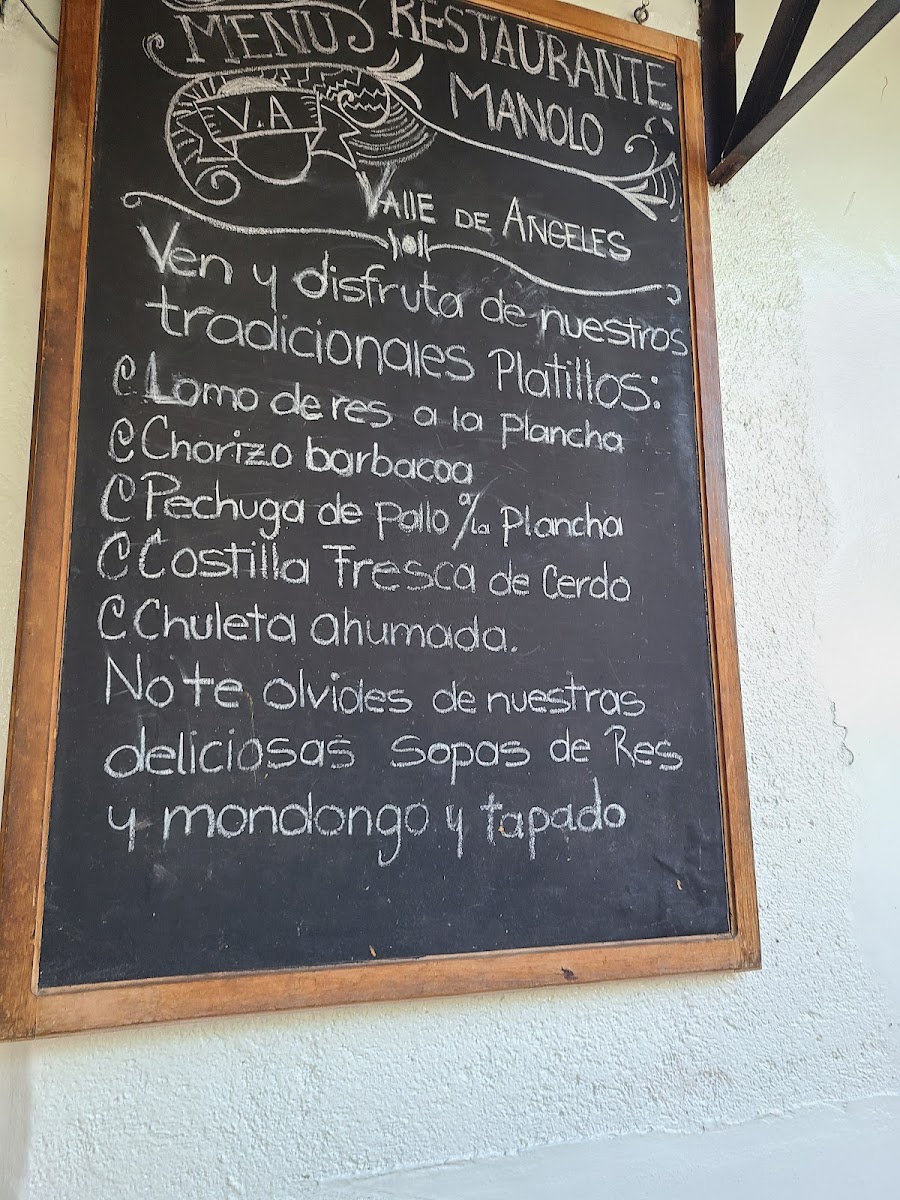 MENU'S RESTAURANTE
MANOLO
V.A
VAllE DE ANGELES
Ven y disfruta de nuestros
tradicionales Platillos:
Lomo de res a la Plancha
Chorizo barbacoa
Pechuga de pollo a/la plancha
Costilla Fresca de Cerdo
Chuleta ahumada.
No te olvides de nuestras
deliciosas sopas de Res
y mondongo y tapado